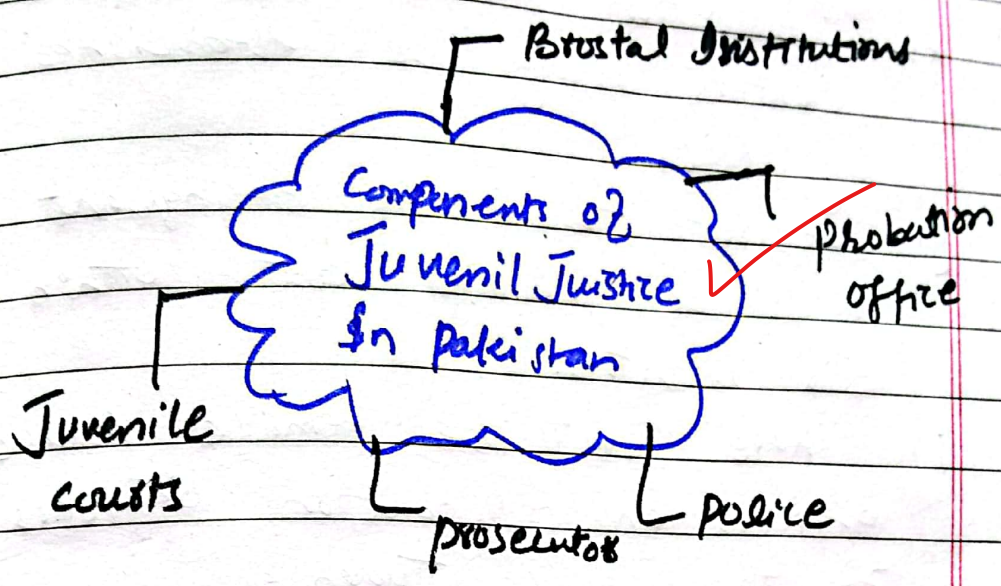 Brostal Institutions
Components of
Juvenil Juistice
In Pakistan
Probation
office
Juvenile
courts
Prosecutor
Police